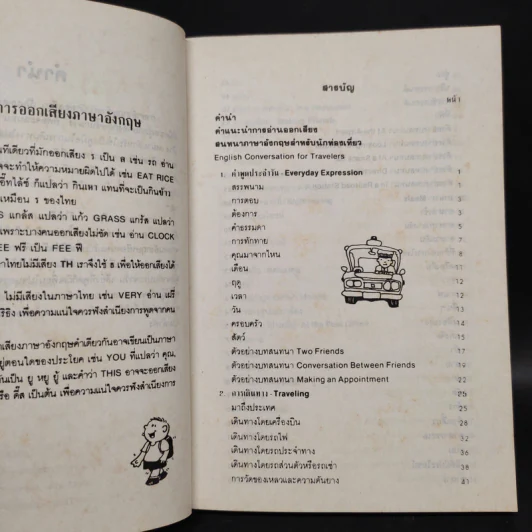 การออกเสียงภาษาอังกฤษ
ทีเดียวที่มักออกเสียง ร เป็น ล เช่น รถ อ่าน
จะทำให้ความหมายผิดไปได้ เช่น EAT RICE
อี๊ทไล้ซ์ ก็แปลว่า กินเหา แทนที่จะเป็นกินข้าว
เหมือน ร ของไทย
S แกล้ส แปลว่า แก้ว GRASS แกร้ส แปลว่า
เพราะบางคนออกเสียงไม่ชัด เช่น อ่าน CLOCK
EE ฟรี เป็น FEE ฟี
าไทยไม่มีเสียง TH เราจึงใช้ ธ เพื่อให้ออกเสียงได้
ไม่มีเสียงในภาษาไทย เช่น VERY อ่าน
เพื่อความแน่ใจควรฟังสำเนียงการพูดจากคน
เสียงภาษาอังกฤษคำเดียวกันอาจเขียนเป็นภาษา
อยู่ตอนใดของประโยค เช่น YOU ที่แปลว่า คุณ,
เป็น ยู หยู ยู้ และคำว่า THIS อาจจะออกเสียง
รือ ดี๊ส เป็นต้น เพื่อความแน่ใจควรฟังสำเนียงการ
สารบัญ
หน้า
คำนำ
คำแนะนำการอ่านออกเสียง
สนทนาภาษาอังกฤษสำหรับนักท่องเที่ยว
English Conversation for Travelers
1. คำพูดประจำวัน - Everyday Expression 1
สรรพนาม 1
การตอบ 2
ต้องการ 3
คำธรรมดา 4
การทักทาย 5
คุณมาจากไหน 7
เดือน 11
ฤดู 12
เวลา 12
วัน 13
ครอบครัว 15
สัตว์ 17
ตัวอย่างบทสนทนา Two Friends 17
ตัวอย่างบทสนทนา Conversation Between Friends 19
ตัวอย่างบทสนทนา Making an Appointment 22
2. การเดินทาง - Traveling 25
มาถึงประเทศ 25
เดินทางโดยเครื่องบิน 28
เดินทางโดยรถไฟ 32
เดินทางโดยรถประจำทาง 36
เดินทางโดยรถส่วนตัวหรือรถเช่า 38
การวัดของเหลวและความดันยาง 41